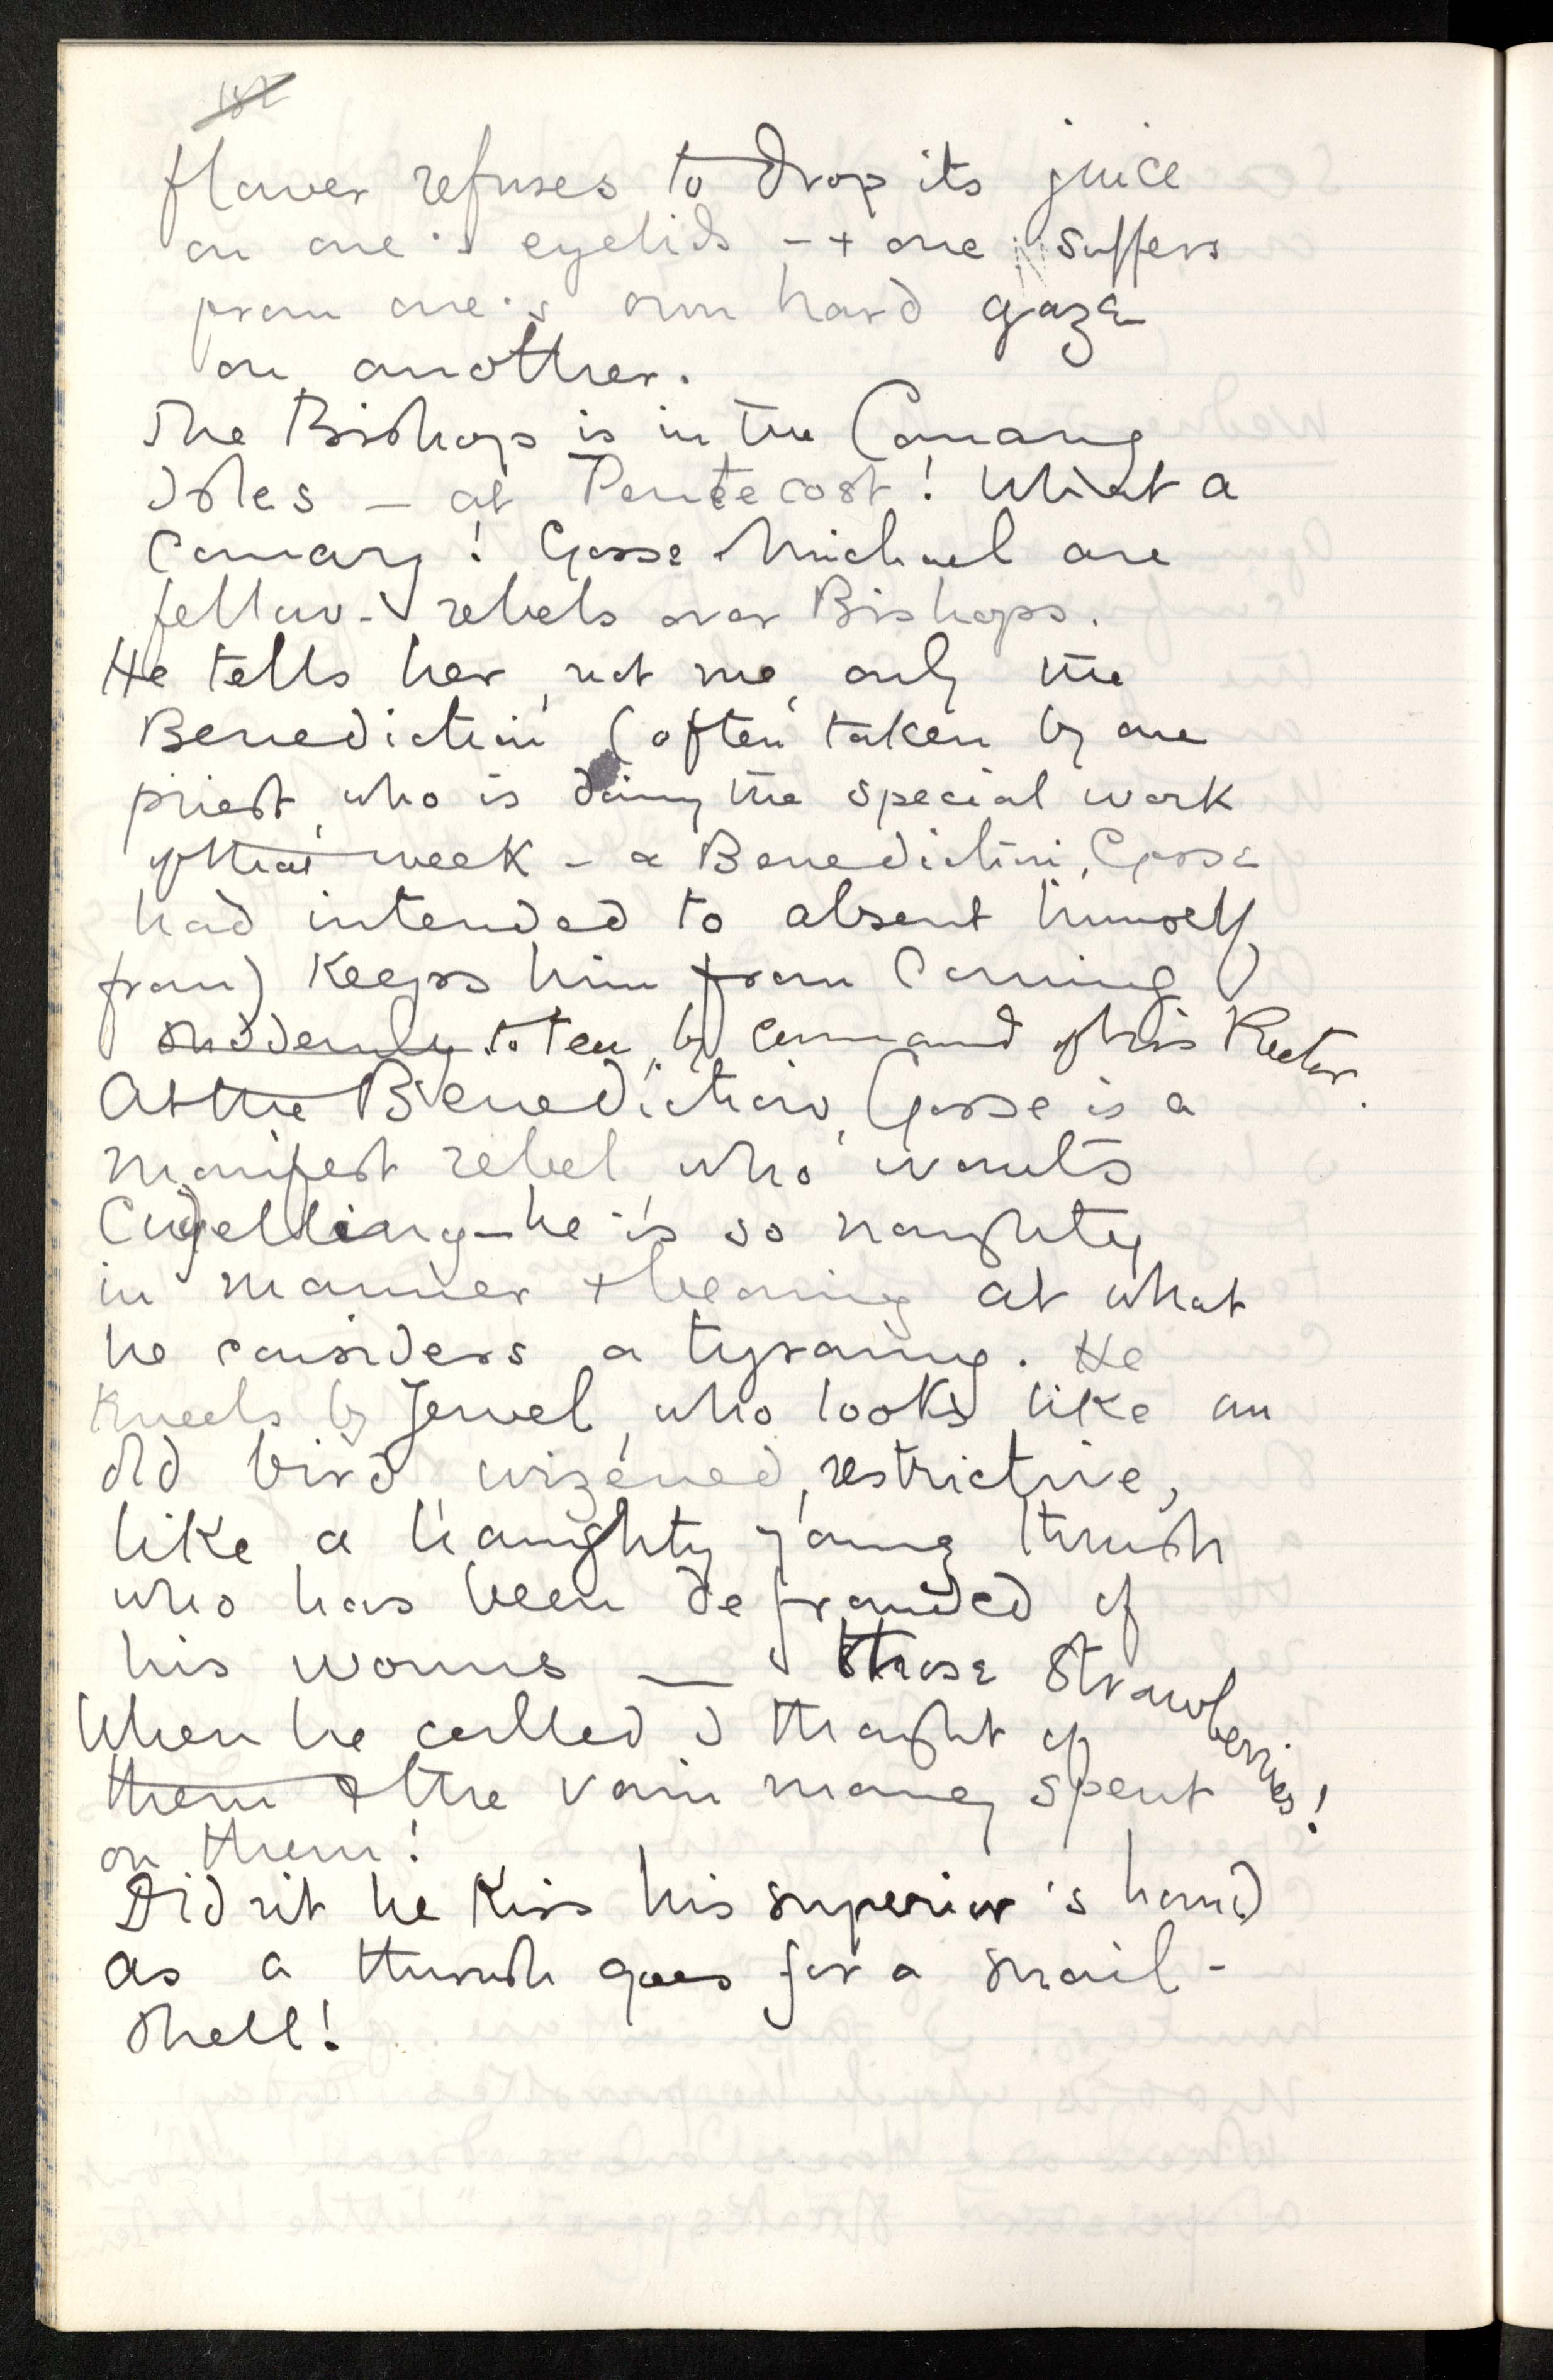 182
flower refuses to drop its juice
on one's eyelids - + one suffers
from one's own hard gaze
on another.
The Bishop is in the Canary
Isles — at Pentecost! What a
Canary! Gosse & Michael are
fellow-rebels over Bishops.
He tells her, not me, only the
Benediction (often taken by one
priest, who is doing the special work
of that week - a Benediction, Gosse
had intended to absent himself
from) keeps him from coming
suddenly to tea, by command of his Rector.
At the Benediction, Gosse is a
manifest rebel who wants
Cudgelling - he is so haughty
in manner + bearing at what
he considers a tyranny. He
Kneels by Jewel, who looks like an
old bird wizened, restrictive,
like a haughty young thrush
who has been defrauded of
his worms — those strawberries!
When he called I thought of
them & the vain money spent
on them!
Didn't he Kiss his superior's hand
as a thrush goes for a snail-
shell!